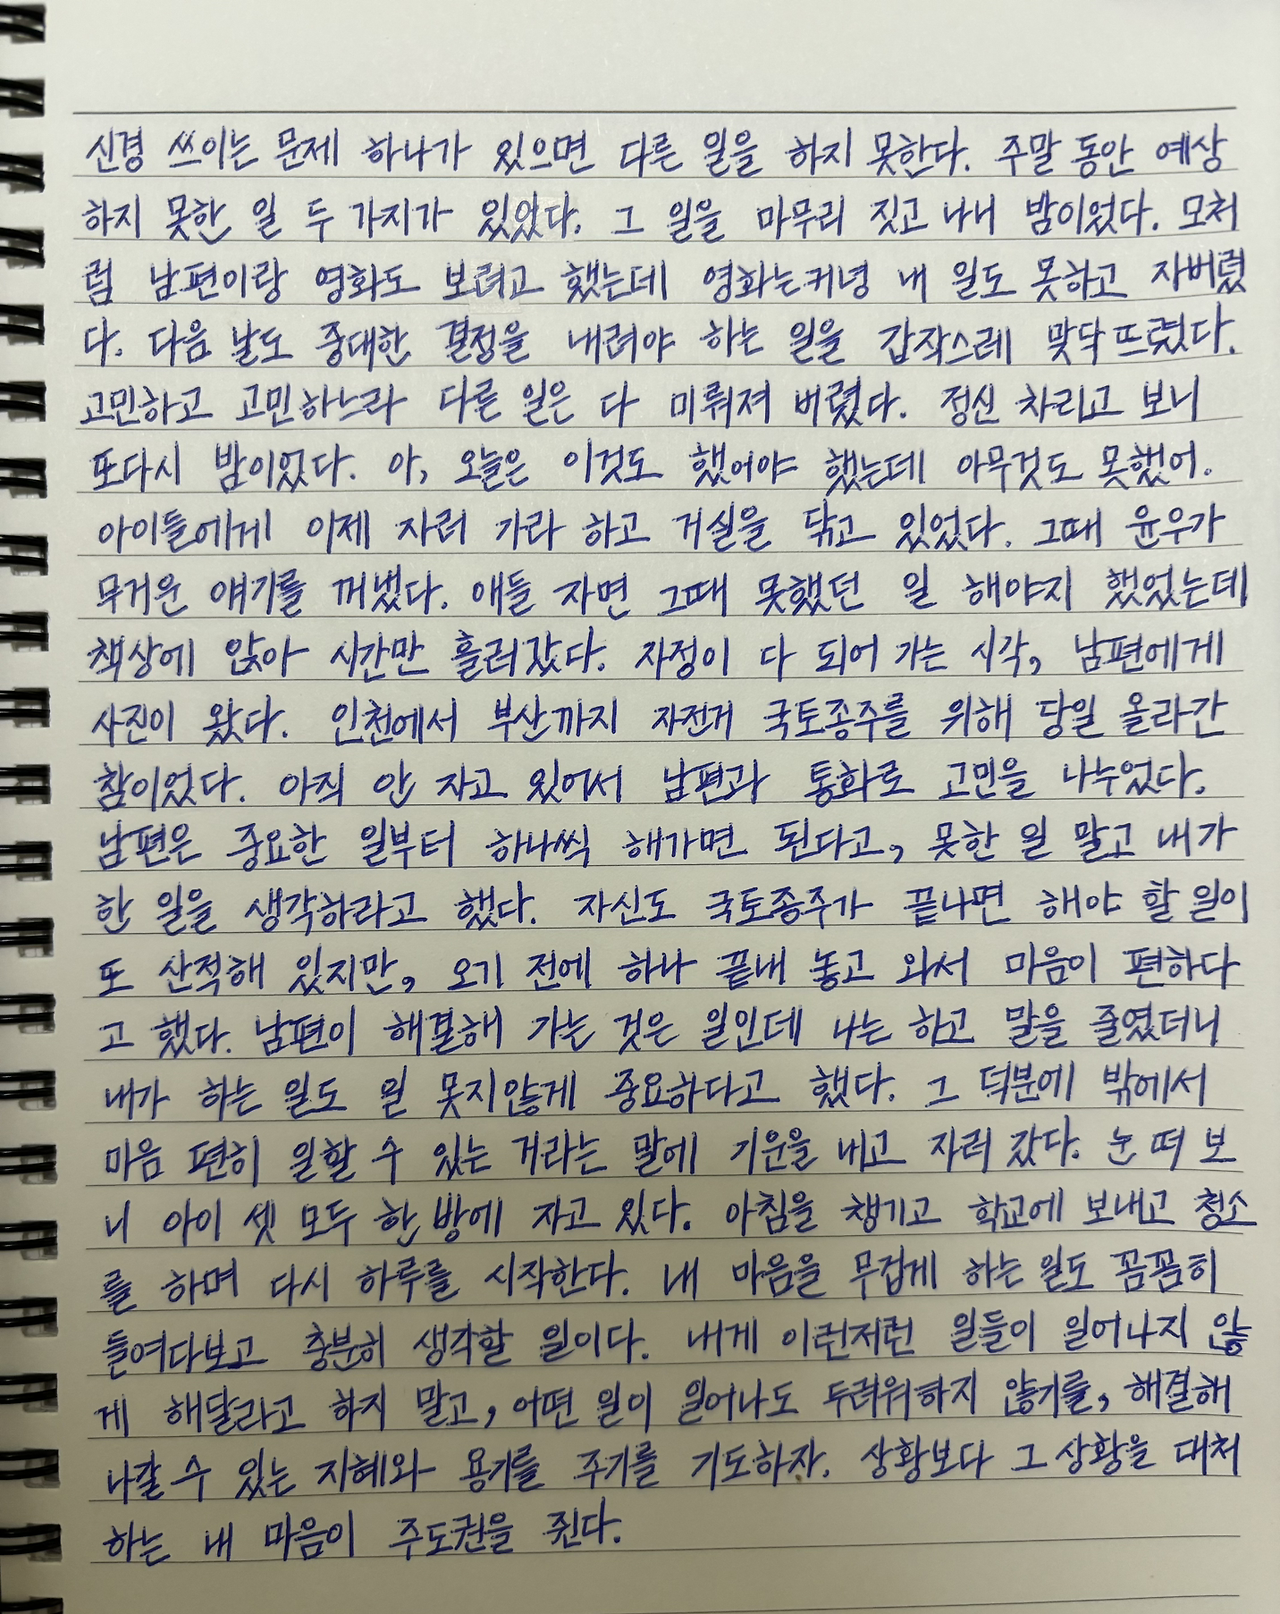 신경 쓰이는 문제 하나가 있으면 다른 일을 하지 못한다. 주말 동안 예상
하지 못한 일 두 가지가 있었다. 그 일을 마무리 짓고 나니 밤이었다. 모처
럼 남편이랑 영화도 보려고 했는데 영화는커녕 내 일도 못하고 자버렸
다. 다음 날도 중대한 결정을 내려야 하는 일을 갑작스레 맞닥뜨렸다.
고민하고 고민하느라 다른 일은 다 미뤄져 버렸다. 정신 차리고 보니
또다시 밤이었다. 아, 오늘은 이것도 했어야 했는데 아무것도 못했어.
아이들에게 이제 자러 가라 하고 거실을 닦고 있었다. 그때 윤우가
무거운 얘기를 꺼냈다. 애들 자면 그때 못했던 일 해야지 했었는데
책상에 앉아 시간만 흘러갔다. 자정이 다 되어 가는 시각, 남편에게
사진이 왔다. 인천에서 부산까지 자전거 국토종주를 위해 당일 올라간
참이었다. 아직 안 자고 있어서 남편과 통화로 고민을 나누었다.
남편은 중요한 일부터 하나씩 해가면 된다고, 못한 일 말고 내가
한 일을 생각하라고 했다. 자신도 국토종주가 끝나면 해야 할 일이
또 산적해 있지만, 오기 전에 하나 끝내 놓고 와서 마음이 편하다
고 했다. 남편이 해결해 가는 것은 일인데 나는 하고 말을 줄였더니
내가 하는 일도 일 못지않게 중요하다고 했다. 그 덕분에 밖에서
마음 편히 일할 수 있는 거라는 말에 기운을 내고 자러 갔다. 눈 떠 보
니 아이 셋 모두 한 방에 자고 있다. 아침을 챙기고 학교에 보내고 청소
를 하며 다시 하루를 시작한다. 내 마음을 무겁게 하는 일도 꼼꼼히
들여다보고 충분히 생각할 일이다. 내게 이런저런 일들이 일어나지 않
게 해달라고 하지 말고, 어떤 일이 일어나도 두려워하지 않기를, 해결해
나갈 수 있는 지혜와 용기를 주기를 기도하자. 상황보다 그 상황을 대처
하는 내 마음이 주도권을 쥔다.